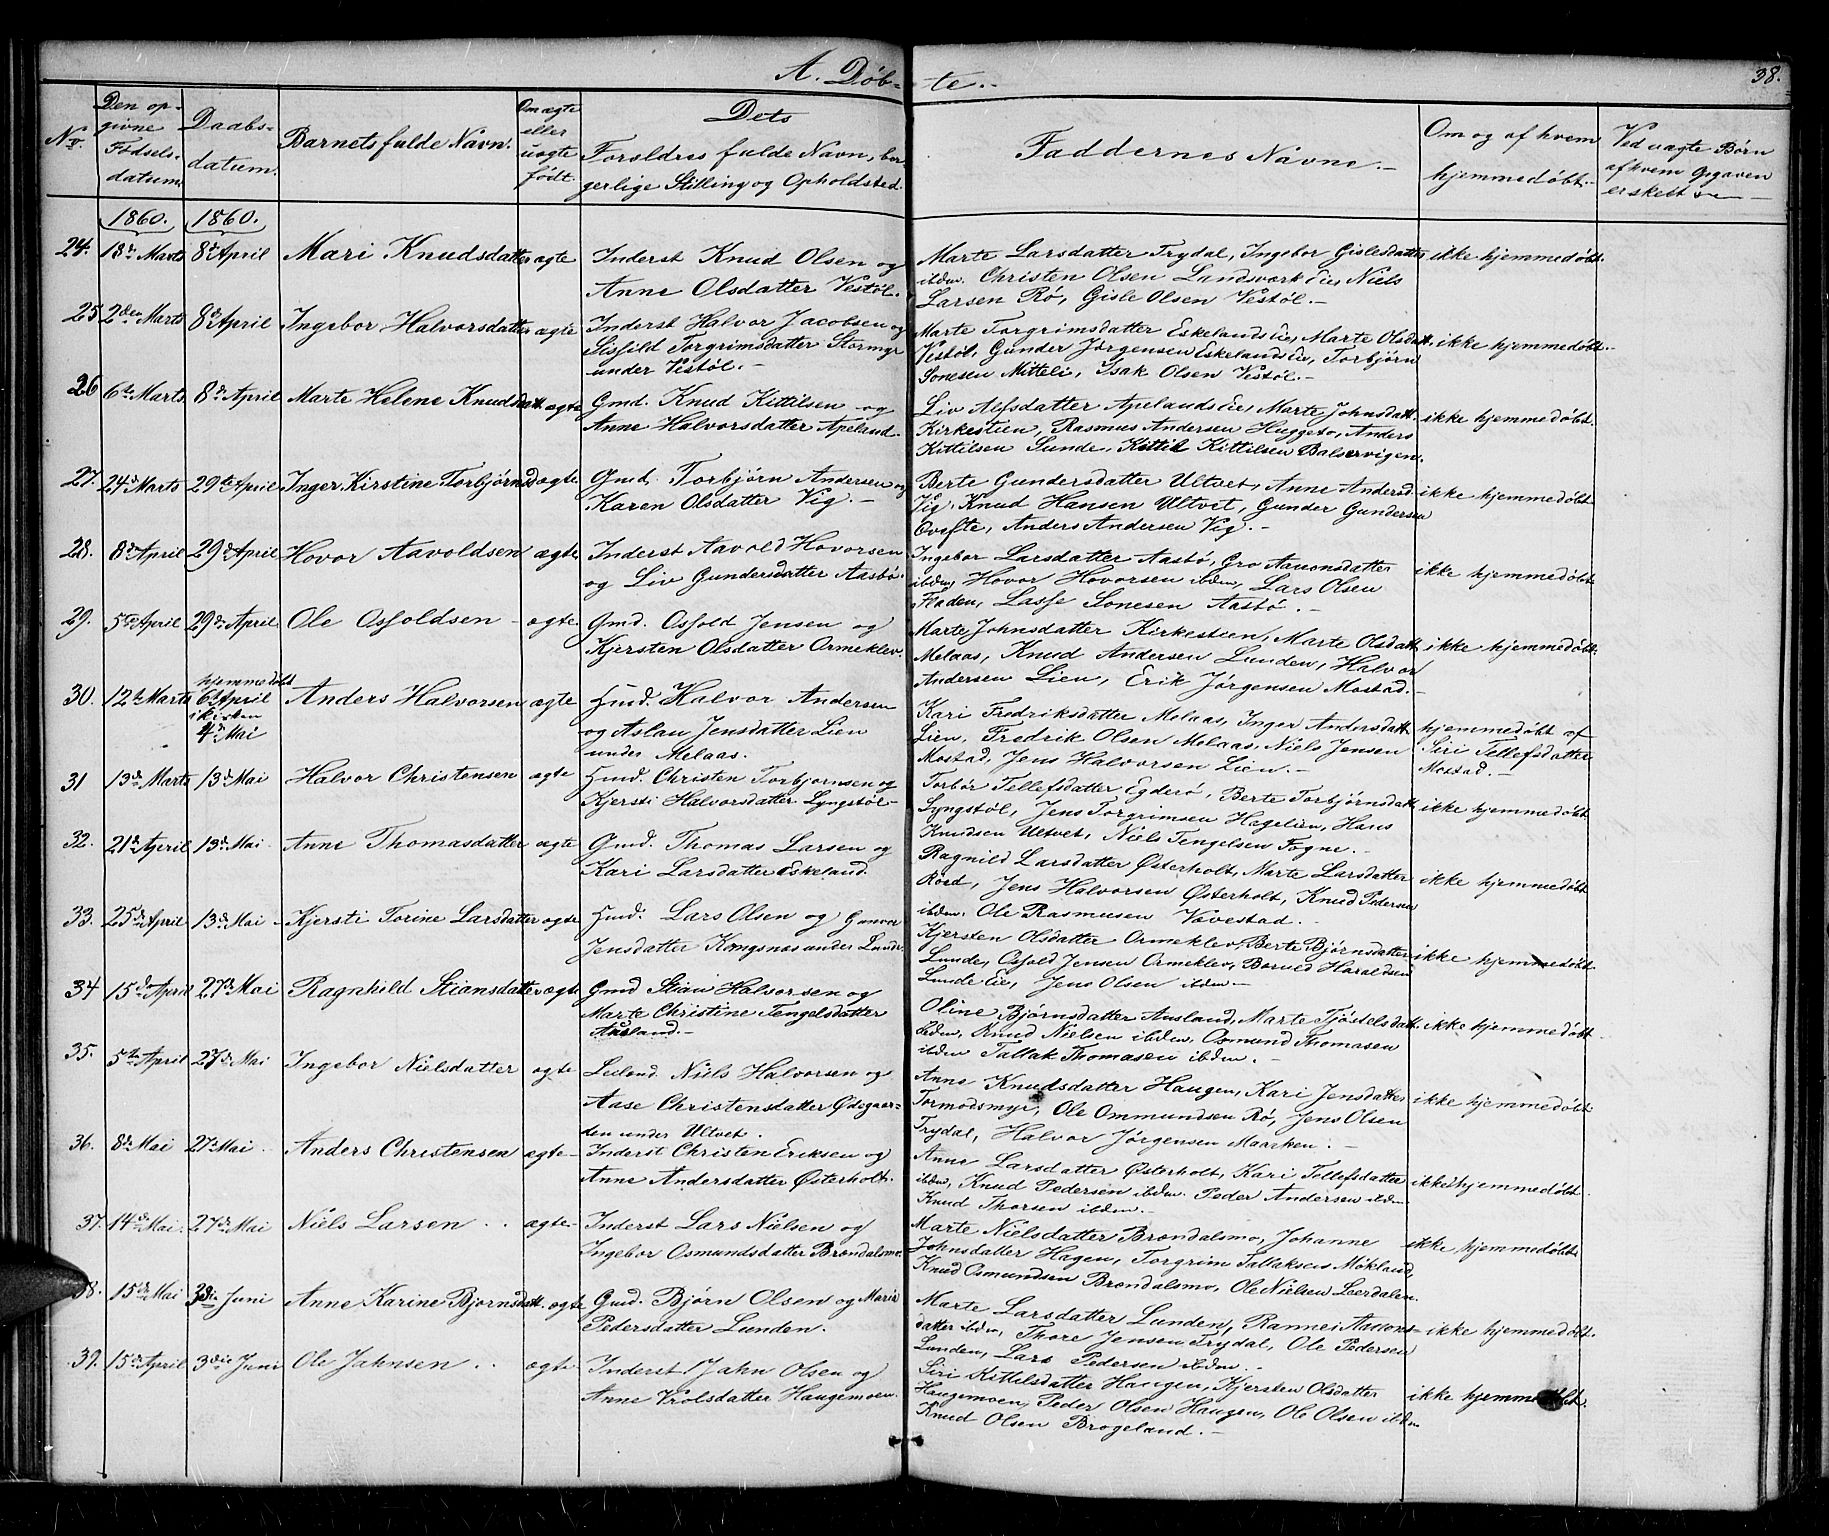 A. Døb-te.-
38.
No.
Den opgivne Fødselsdatum.
Daabsdatum.
Barnets fulde Navn.
Om ægte eller uægte født.
Dets Forældres fulde Navn, borgerlige Stilling og Opholdsted.
Faddernes Navne.-
Om og af hvem hjemmedøbt.-
Ved uægte Børn af hvem Opgaven er skeet
1860. 1860.
24. 18de Marts 8de April Mari Knudsdatter ægte Inderst Knud Olsen og
Anne Olsdatter Vestøl.
Marte Larsdatter Trydal, Ingebor Gislesdatter
ibdm. Christen Olsen Lundsværk Eie, Niels
Larsen Rø, Gisle Olsen Vestøl.-
ikke hjemmedøbt.
25 2den Marts 8de April Ingebor Halvorsdatter ægte Inderst Halvor Jacobsen og
Sisfild Torgrimsdatter Stormyr
under Vestøl.-
Marte Torgrimsdatter Eskelands Eie, Marte Olsdatt.
Vestøl, Gunder Jørgensen Eskelands Eie, Torbjørn
Sonesen Mitteli, Isak Olsen Vestøl.-
ikke hjemmedøbt.-
26 6te Marts 8de April Marte Helene Knudsdatt. ægte Gmd. Knud Kittilsen og
Anne Halvorsdatter Apeland.
Liv Alfsdatter Apelands Eie, Marte Johnsdatt.
Kirkestien, Rasmus Andersen Huggeto, Anders
Kittilsen Lunde, Kittil Kittilsen Balservigen.
ikke hjemmedøbt.
27. 24de Marts 29de April Inger Kirstine Torbjørnsd ægte Gmd. Torbjørn Andersen og
Karen Olsdatter Vig.-
Berte Gundersdatter Ultvet, Anne Andersd.
Vig, Knud Hansen Ultvet, Gunder Gundersen
Ovefte, Anders Andersen Vig.-
ikke hjemmedøbt
28. 8de April 29de April Hovor Aavoldsen ægte Inderst Aavold Hovorsen
og Liv Gundersdatter Aasbø.
Ingebor Larsdatter Aasbø, Gro Aanonsdatter
ibdm, Hovor Hovorsen ibdm, Lars Olsen
Fladen, Lasse Sonesen Aasbø.-
ikke hjemmedøbt
29. 5te April 29de April Ole Osfoldsen - ægte. Gmd. Osfold Jensen og
Kjersten Olsdatter Ormeklev.
Marte Johnsdatter Kirkestien, Marte Olsdatt.
Melaas, Knud Andersen Lunden, Halvor
Andersen Lien, Erik Jørgensen Mostad.-
ikke hjemmedøbt.
30. 12te Marts hjemmedøbt
6te April
i Kirken
4de Mai
Anders Halvorsen ægte Husmd. Halvor Andersen
og Aslau Jensdatter Lien
under Melaas.
Kari Fredriksdatter Melaas, Inger Andersdatt.
Lien, Fredrik Olsen Melaas, Niels Jensen
Mostad, Jens Halvorsen Lien.-
hjemmedøbt af
Siri Tellefsdatter
Mostad.-
31 13de Marts 13de Mai Halvor Christensen ægte Husmd. Christen Torbjørnsen og
Kjersti Halvorsdatter Lyngstøl-
Torbør Tellefsdatter Egderø, Berte Torbjørnsdatt.
Lyngstøl, Jens Torgrimsen Hagelien, Hans
Knudsen Ultvet, Niels Tengelsen Fogne.-
ikke hjemmedøbt
32. 21de April 13de Mai Anne Thomasdatter ægte Gmd. Thomas Larsen og
Kari Larsdatter Eskeland.
Ragnild Larsdatter Østerholt, Marte Larsdatter
Roed, Jens Halvorsen Østerholt, Knud Pedersen
ibdm. Ole Rasmusen Vævestad.-
ikke hjemmedøbt
33. 25de April 13de Mai Kjersti Torine Larsdatter ægte Husmd. Lars Olsen og Gunvor
Jensdatter Kongsnæs under Lunde.
Kjersten Olsdatter Ormeklev, Berte Bjørnsdatter
Lunde, Osfold Jensen Ormeklev, Borvild Haraldsen
Lunde Eie, Jens Olsen ibdm.-
ikke hjemmedøbt.
34 15de April 27de Mai Ragnhild Stiansdatter ægte Gmd Stian Halvorsen og
Marte Christine Tengelsdatter
Ausland.-
Oline Bjørnsdatter Ausland, Marte Tjøstelsdatt.
ibdm, Knud Nielsen ibdm, Osmund Thomasen
ibdm Tallak Thomasen ibdm.-
ikke hjemmedøbt
35. 5te April 27de Mai Ingebor Nielsdatter ægte Leilænd. Niels Halvorsen og
Aase Christensdatter Ødegaar-
den under Ultvet.
Anne Knudsdatter Haugen, Kari Jensdatter
Tormodsmyr, Ole Ommundsen Rø, Jens Olsen
Trydal, Halvor Jørgensen Maarken.-
ikke hjemmedøbt
36. 8de Mai 27de Mai Anders Christensen ægte- Inderst Christen Eriksen og
Anne Andersdatter Østerholt.
Anne Larsdatter Østerholt, Kari Tellefsdatter
ibdm, Knud Pedersen ibdm. Peder Andersen ibdm
Knud Thorsen ibdm.-
ikke hjemmedøbt
37. 14de Mai 27de Mai Niels Larsen ægte- Inderst Lars Nielsen og
Ingebor Osmundsdatter Brøndalsmo.
Marte Nielsdatter Brøndalsmo, Johanne
Johnsdatter Hagen, Torgrim Tallaksen Møkland,
Knud Osmundsen Brøndalsmo, Ole Nielsen Leerdalen.
ikke hjemmedøbt
38. 15de Mai 3die Juni Anne Karine Bjørnsdatt. ægte Gmd. Bjørn Olsen og Maria
Pedersdatter Lunden.
Marte Larsdatter Lunden, Rannei Aanons-
datter ibdm, Thore Jensen Trydal, Ole Pedersen
Lunden, Lars Pedersen ibdm.-
ikke hjemmedøbt.
39. 15de April 3die Juni Ole Jahnsen ægte Inderst Jahn Olsen og
Anne Trolsdatter Haugemoen.
Siri Kittelsdatter Haugen, Kjersten Olsdatter
Haugemoen, Peder Olsen Haugen, Ole Olsen ibdm
Knud Olsen Brogeland.-
ikke hjemmedøbt